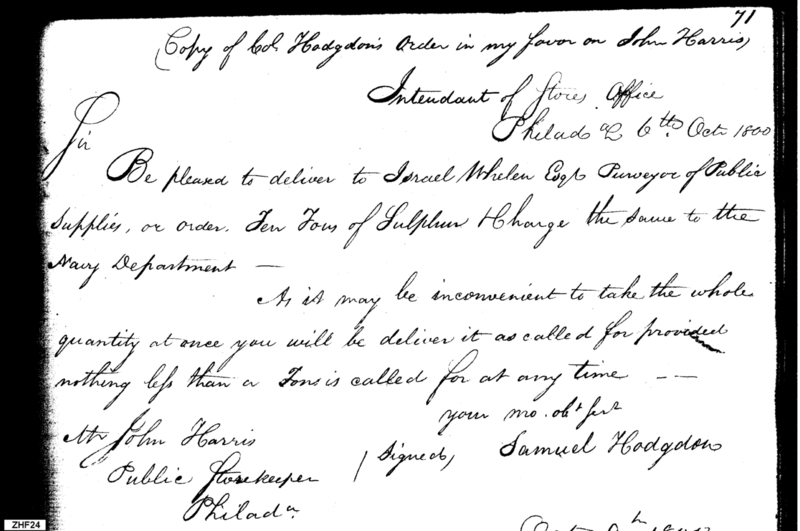 71
Copy of Col Hodgdon's Order in my favor on John Harris,
Intendant of Stores Office
Philada 6th Octr 1800
Sir
Be pleased to deliver to Israel Whelen Esqr Purveyor of Public
Supplies, or order. Ten Tons of Sulphur & Charge the same to the
Navy Department —
As it may be inconvenient to take the whole
quantity at once you will be deliver it as called for provided
nothing less than a Tons is called for at any time — —
your mo. obt Servt
Mr John Harris
Signed, Samuel Hodgdon
Public Storekeeper
Philada.
ZHF24